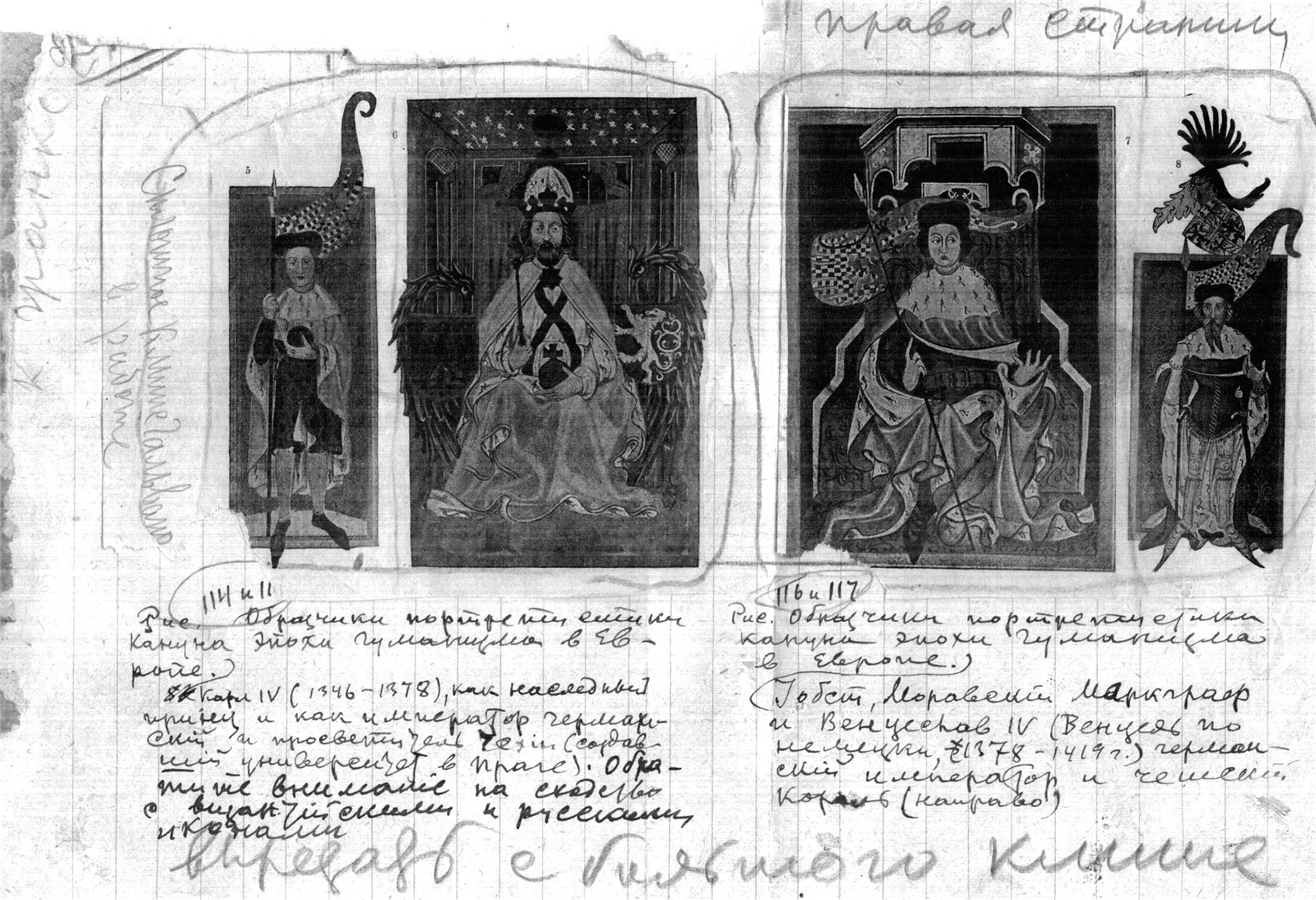 правая страниц
К
5
6
7
8
в работе
114 и 11
Рис. Образчики портретистики
кануна эпохи гуманизма в Ев-
ропе.)
Карл IV (1346–1378), как наследный
принц и как император герман-
скій и просветитель Чехіи (создав-
шій университет в Праге). Обра-
тите вниманіе на сходство
с византійскими и русскими
иконами
116 и 117
Рис. Образчики портретистики
кануна эпохи гуманизма
в Европе.)
(Іобст, Моравскій Маркграф
и Венцеслав IV (Венцель по
немецки, 1378–1419 г.) герман-
скій император и чешскій
Король (направо)
вырезать с большого клише